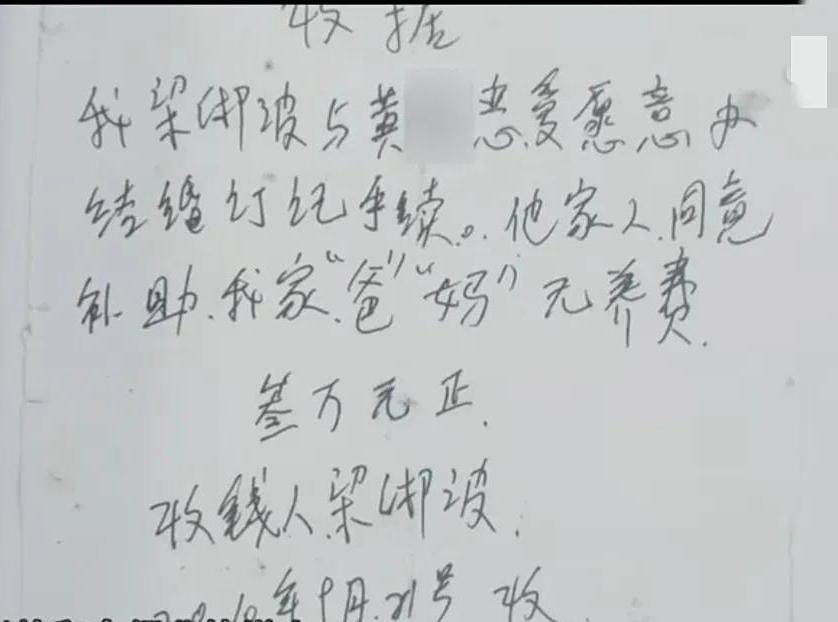 收据
我梁俰波与黄 恋爱愿意办
结婚订记手续。他家人.同意
补助.我家."爸""妈"无养费.
叁万元正.
收钱人.梁俰波.
年9月.21号 收